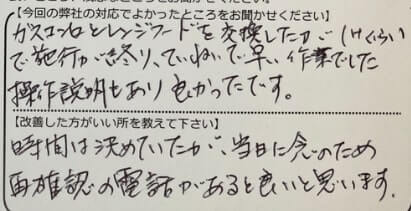 【今回の弊社の対応でよかったところをお聞かせください】
ガスコンロとレンジフードを交換したが くらい
で施行が終り、ていねいで早い作業でした
操作説明もあり良かったです。
【改善した方がいい所を教えて下さい】
時間は決めていたが、当日に念のため
再確認の電話があると良いと思います。